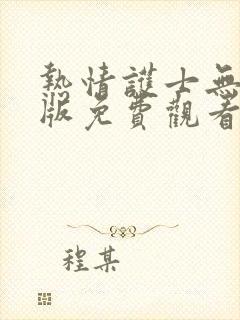 熱情護士無
版免費觀看
程某